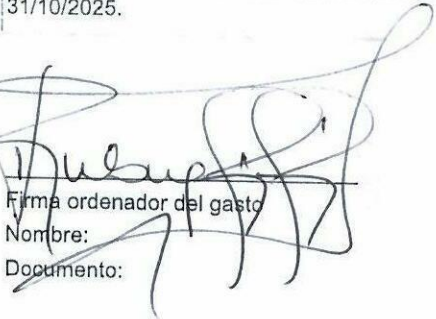 31/10/2025.
Firma ordenador del gasto
Nombre:
Documento: